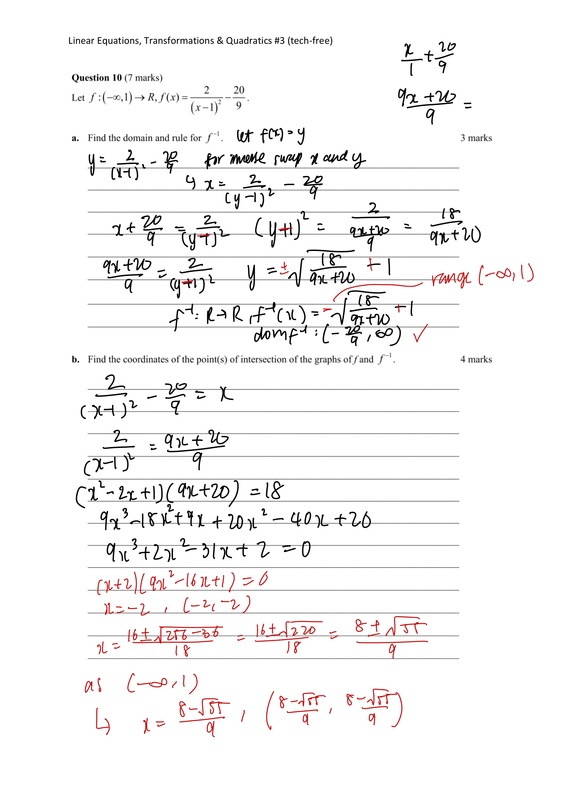 Linear Equations, Transformations & Quadratics #3 (tech-free)
x/1 + 20/9
(9x+20)/9 =
Question 10 (7 marks)
Let f : (−∞,1) → R, f(x) = 2/(x−1)² − 20/9.
a. Find the domain and rule for f⁻¹. let f(x) = y 3 marks
y = 2/(x−1)² − 20/9 for inverse swap x and y
↳ x = 2/(y−1)² − 20/9
x + 20/9 = 2/(y−1)² (y−1)² = 2/((9x+20)/9) = 18/(9x+20)
(9x+20)/9 = 2/(y−1)² y = ±√(18/(9x+20)) + 1
range (−∞, 1)
f⁻¹: R → R, f⁻¹(x) = −√(18/(9x+20)) + 1
dom f⁻¹: (−20/9, ∞) ✓
b. Find the coordinates of the point(s) of intersection of the graphs of f and f⁻¹. 4 marks
2/(x−1)² − 20/9 = x
2/(x−1)² = (9x+20)/9
(x²−2x+1)(9x+20) = 18
9x³ − 18x² + 9x + 20x² − 40x + 20
9x³ + 2x² − 31x + 2 = 0
(x+2)(9x²−16x+1) = 0
x = −2 , (−2, −2)
x = (16 ± √(256−36))/18 = (16 ± √220)/18 = (8 ± √55)/9
as (−∞, 1)
↳ x = (8−√55)/9 , ((8−√55)/9, (8−√55)/9)